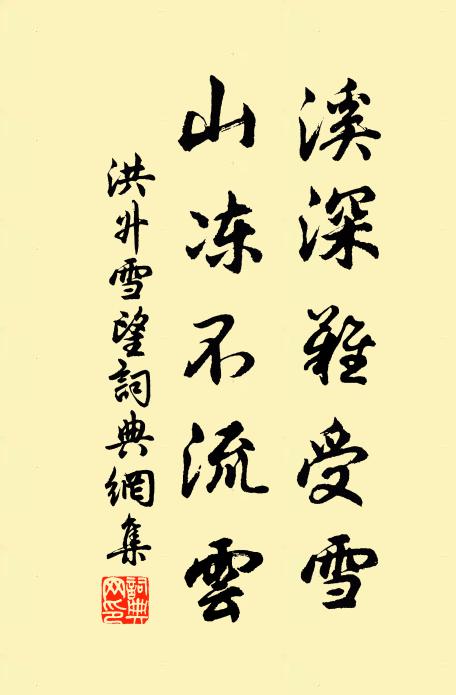 溪深難受雪
山冻不流雲
洪升雪望詞典網集
詞典
网印